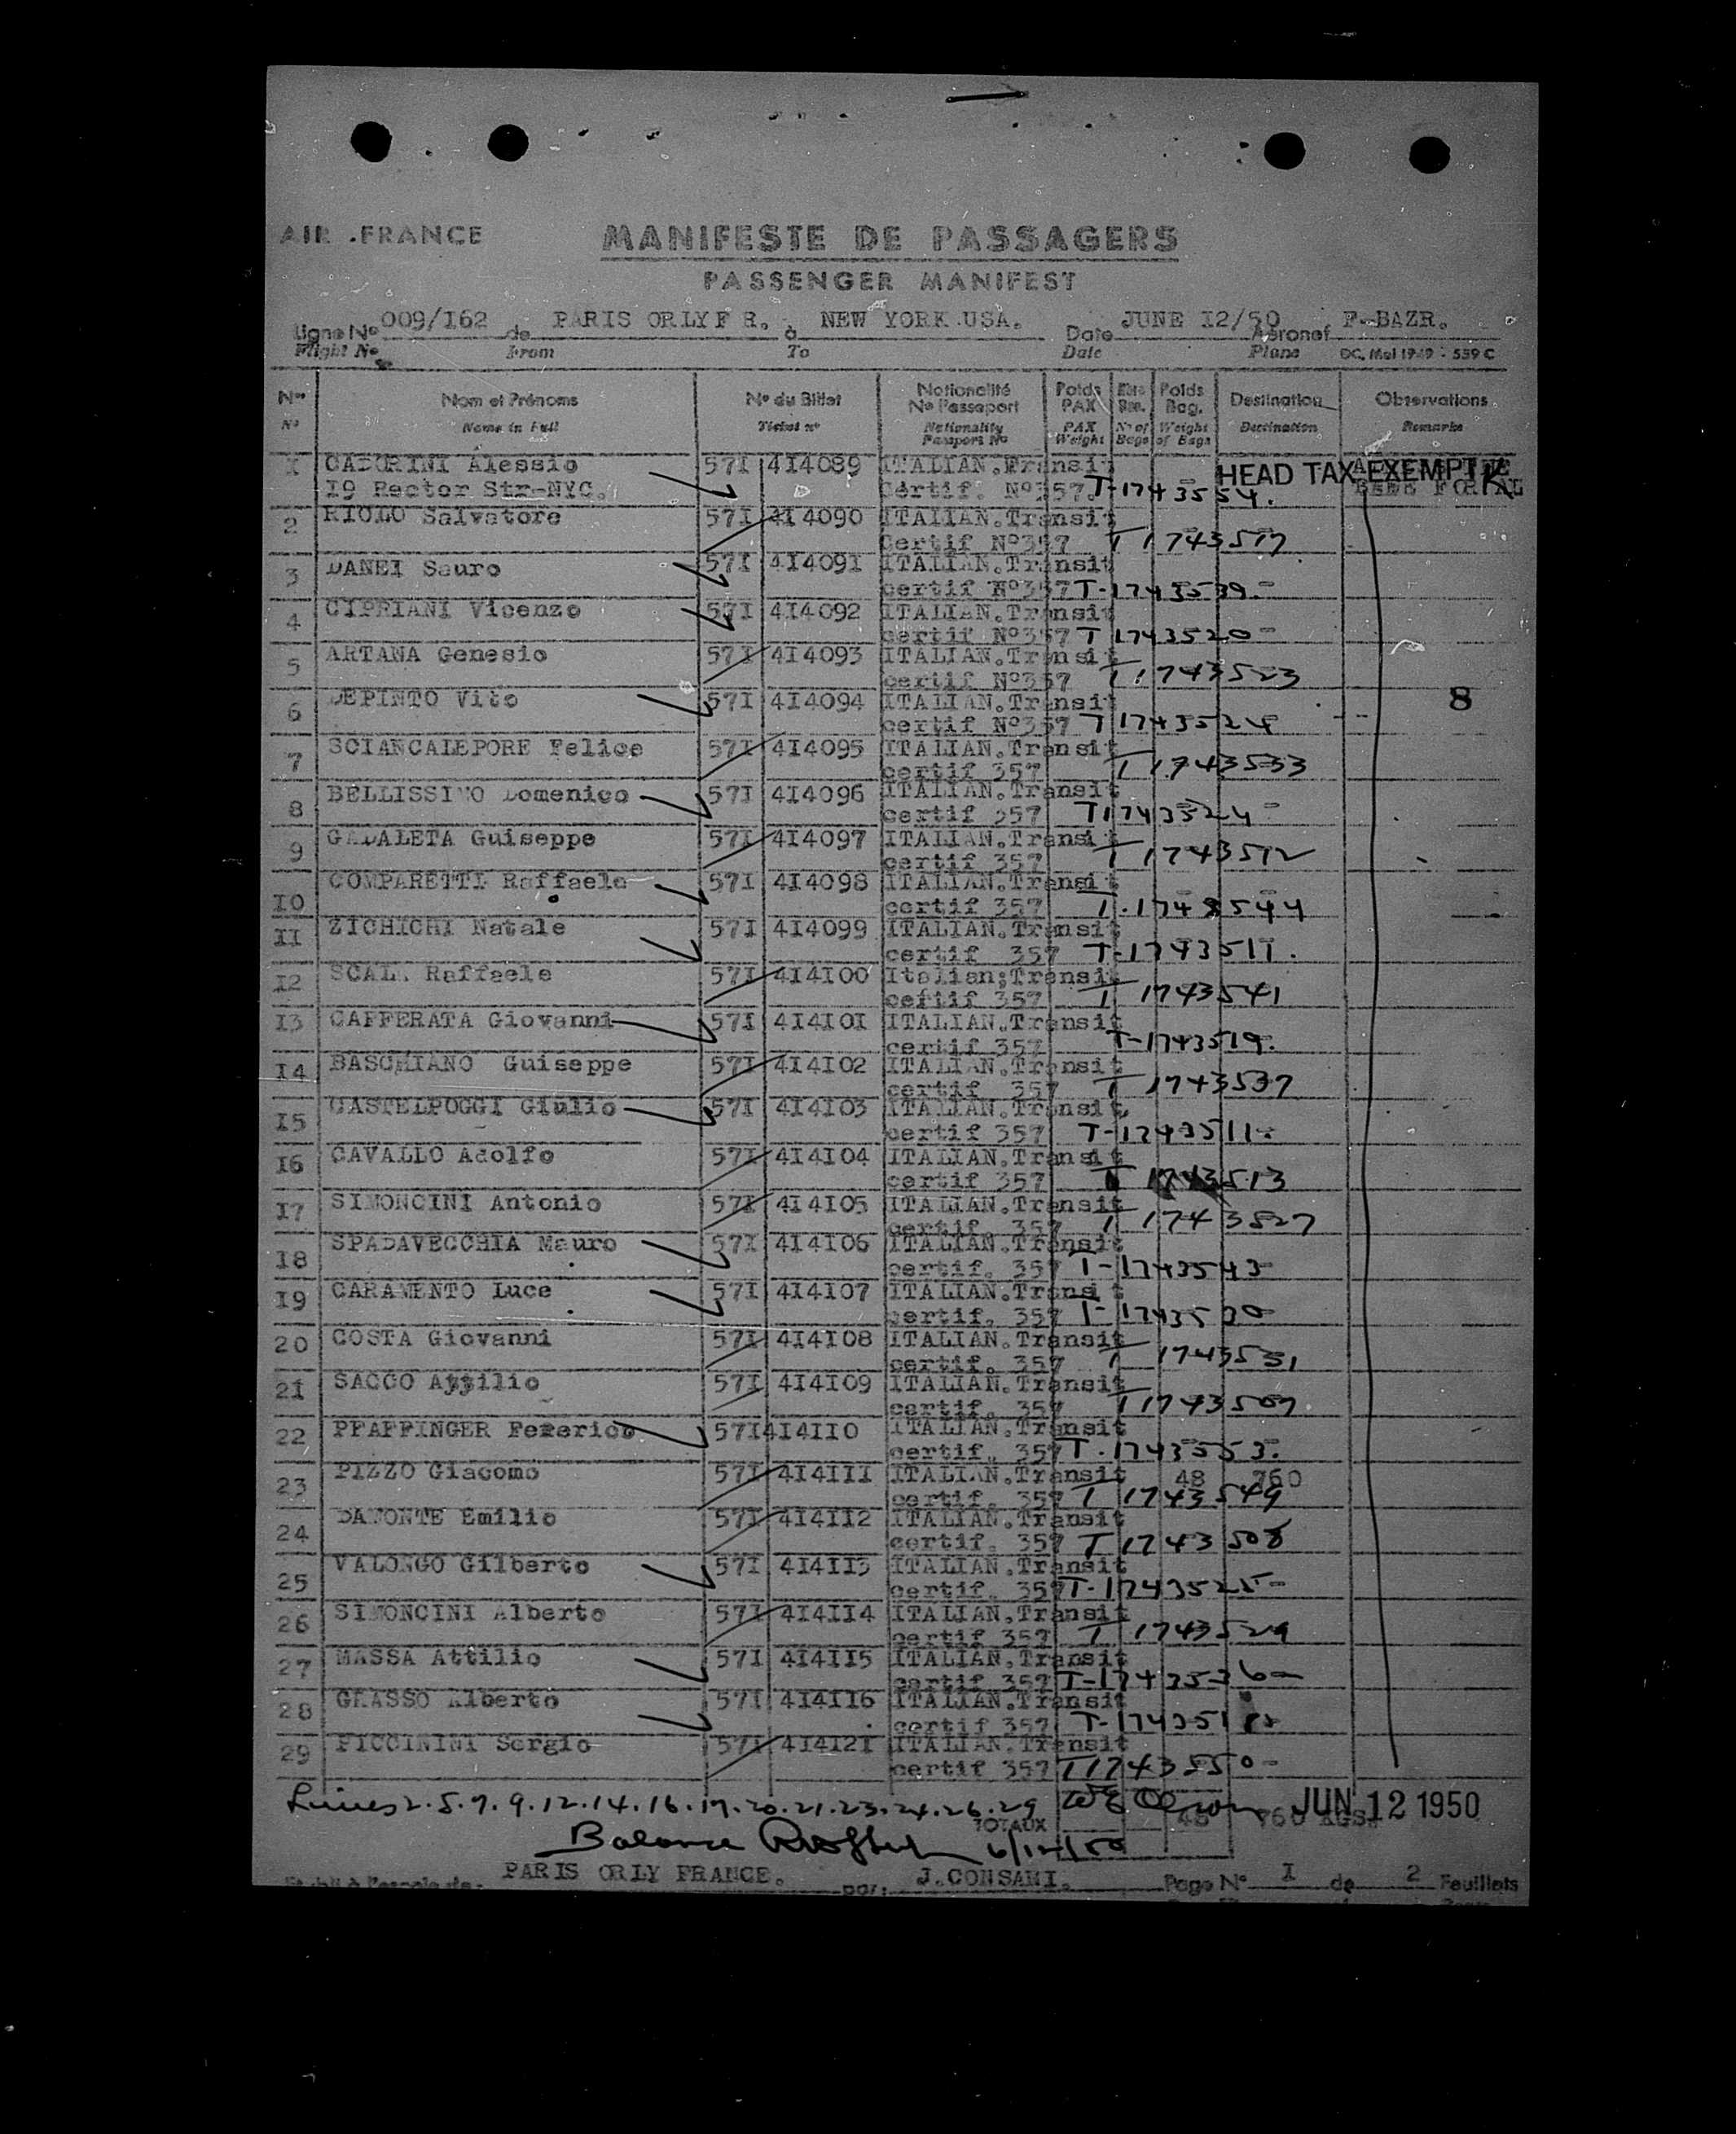 AIR FRANCE
MANIFESTE DE PASSAGERS
PASSENGER MANIFEST
Ligne No 009/I62 de PARIS ORLY FR. à NEW YORK USA. Date JUNE I2/50 Aéronef F-BAZR.
Flight No From To Date Plane DC. Mel 1949 - 539 C
Nos Nom et Prénoms No du Billet Nationalité No Passeport Poids PAX Poids Bag. Destination Observations
No Name in Full Ticket no Nationality Passport No PAX Weight No of Bags Weight of Bags Destination Remarks
CADORINI Alessio 57I 4I4089 ITALIAN.Transit HEAD TAX EXEMPT
I9 Rector Str-NYC. Certif. No357. T-1743554.
2 RIOLO Salvatore 57I 4I4090 ITALIAN.Transit
Certif No357 T 1743517
3 DANEI Sauro 57I 4I4091 ITALIAN.Transit
certif No357 T-1743539-
4 CIPRIANI Vicenzo 57I 4I4092 ITALIAN.Transit
certif No357 T 1743520-
5 ARTANA Genesio 57I 4I4093 ITALIAN.Transit
certif No357 T 1743523
6 DEPINTO Vito 57I 4I4094 ITALIAN.Transit 8
certif No357 T
7 SCIANCALEPORE Felice 57I 4I4095 ITALIAN.Transit
certif 357 T 1743533
8 BELLISSIMO Domenico 57I 4I4096 ITALIAN.Transit
certif 357 T1743524-
9 GADALETA Guiseppe 57I 4I4097 ITALIAN.Transit
certif 357 T 1743512
I0 COMPARETTI Raffaele 57I 4I4098 ITALIAN.Transit
certif 357 T.1743544
II ZICHICHI Natale 57I 4I4099 ITALIAN.Transit
certif 357 T-1743511.
I2 SCALA Raffaele 57I 4I4I00 Italian;Transit
certif 357 T 1743541
I3 CAFFERATA Giovanni 57I 4I4I0I ITALIAN.Transit
certif 357 T-1743519.
I4 BASCHIANO Guiseppe 57I 4I4I02 ITALIAN.Transit
certif 357 T 1743537
I5 CASTELPOGGI Giulio 57I 4I4I03 ITALIAN.Transit,
certif 357 T-1743511-
I6 CAVALLO Adolfo 57I 4I4I04 ITALIAN.Transit
certif 357 T 1743513
I7 SIMONCINI Antonio 57I 4I4I05 ITALIAN.Transit
certif. 357 T 1743527
I8 SPADAVECCHIA Mauro 57I 4I4I06 ITALIAN.Transit
certif. 357 T-1743543
I9 CARAMENTO Luce 57I 4I4I07 ITALIAN.Transit
certif. 357 T-1743530
20 COSTA Giovanni 57I 4I4I08 ITALIAN.Transit
certif. 357 T 1743531
2I SACCO Azzilio 57I 4I4I09 ITALIAN.Transit
certif. 357 T1743509.
22 PFAFFINGER Federico 57I4I4II0 ITALIAN.Transit
certif. 357 T.1743553.
23 PIZZO Giacomo 57I 4I4III ITALIAN.Transit 48 760
certif. 357 T 1743549
24 DAMONTE Emilio 57I 4I4II2 ITALIAN.Transit
certif. 357 T 1743508
25 VALONGO Gilberto 57I 4I4II3 ITALIAN.Transit
certif. 357 T-1743525-
26 SIMONCINI Alberto 57I 4I4II4 ITALIAN.Transit
certif 357 T 1743529
27 MASSA Attilio 57I 4I4II5 ITALIAN.Transit
certif 357 T-1743536-
28 GRASSO Alberto 57I 4I4II6 ITALIAN.Transit
certif 357
29 PICCININI Sergio 57I 4I4I2I ITALIAN.Transit
certif 357 T1743550-
Lines 2.5.7.9.12.14.16.17.20.21.23.24.26.29 JUN 12 1950
TOTAUX 48 760 KGS.
Balance 6/12/50
PARIS ORLY FRANCE. par: J.CONSANI. Page No I de 2 Feuillets